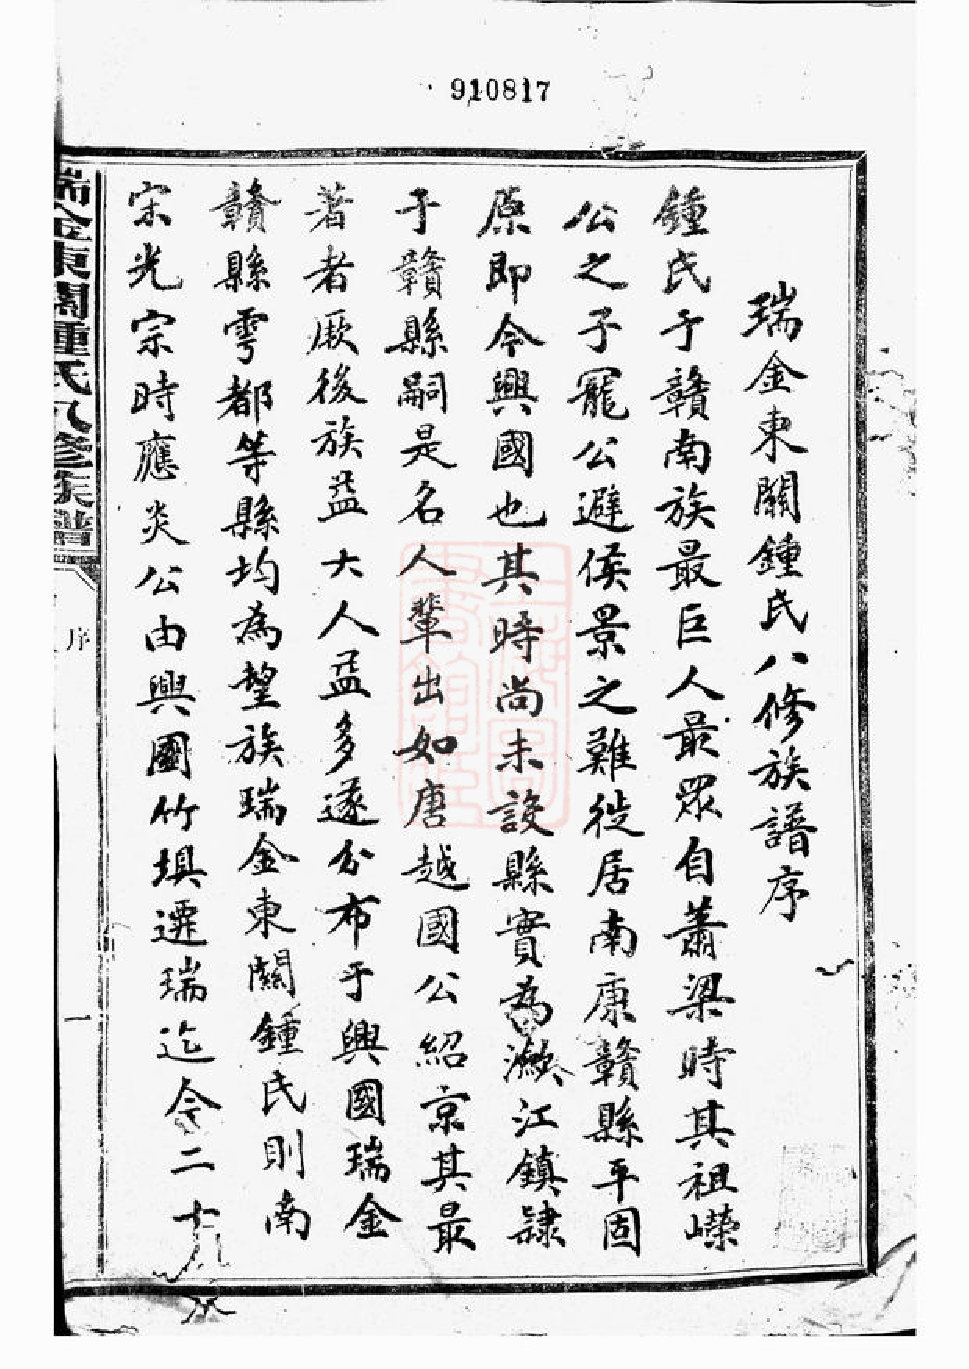 910817
瑞金東關鍾氏八修族譜序
鍾氏于贛南族最巨人最眾自蕭梁時其祖嶸
公之子寵公避侯景之難徙居南康贛縣平固
原即今興國也其時尚未設縣實為瀲江鎮隸
于贛縣嗣是名人輩出如唐越國公紹京其最
著者厥後族益大人益多遂分布于興國瑞金
贛縣雩都等縣均為望族瑞金東關鍾氏則南
宋光宗時應炎公由興國竹垻遷瑞迄今二十
瑞金東關鍾氏八修族譜
序
一